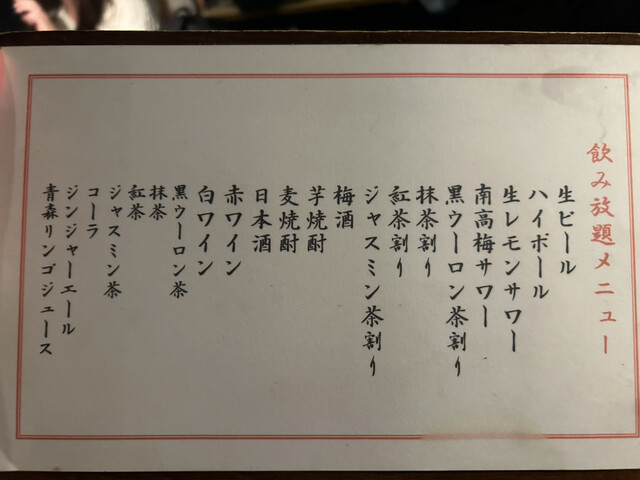 飲み放題メニュー
生ビール
ハイボール
生レモンサワー
南高梅サワー
黒ウーロン茶割り
抹茶割り
紅茶割り
ジャスミン茶割り
梅酒
芋焼酎
麦焼酎
日本酒
赤ワイン
白ワイン
黒ウーロン茶
抹茶
紅茶
ジャスミン茶
コーラ
ジンジャーエール
青森リンゴジュース